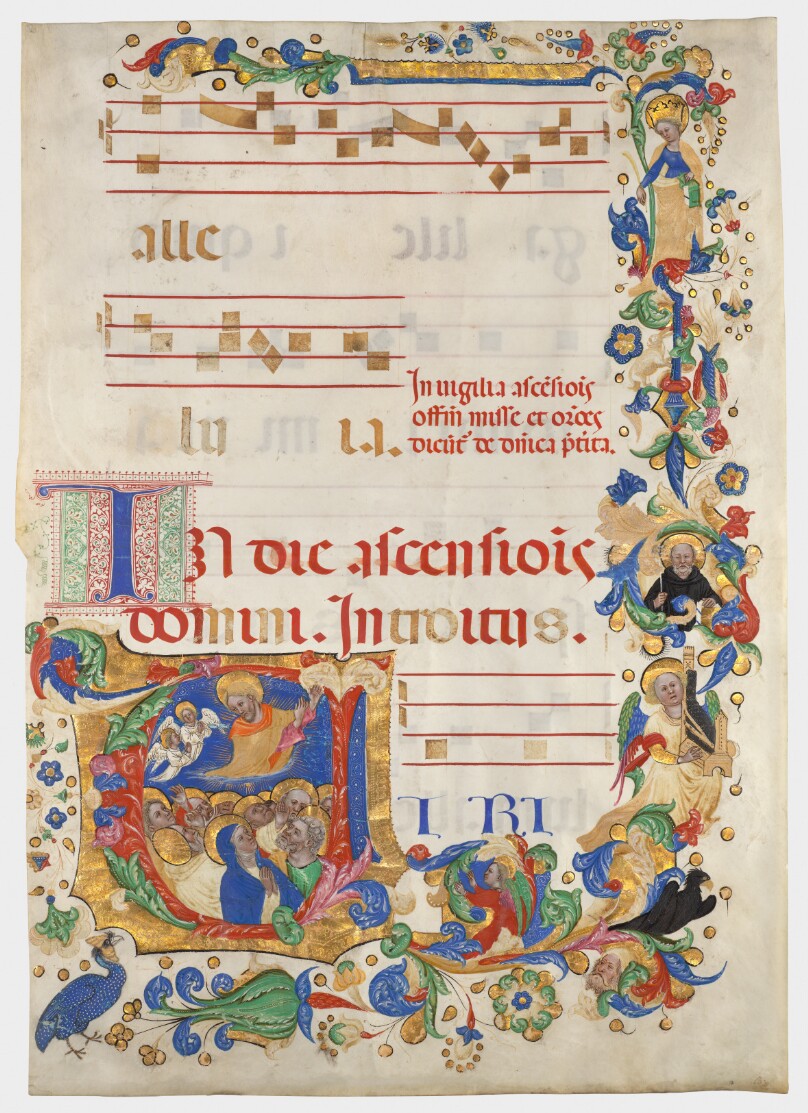 alle
lu ia.
In uigilia ascēsiois
offm̄ misse et oēs
dicūt' de dn̄ica p̄tita.
IN die ascensiois
domini. Introitus.
VIRI